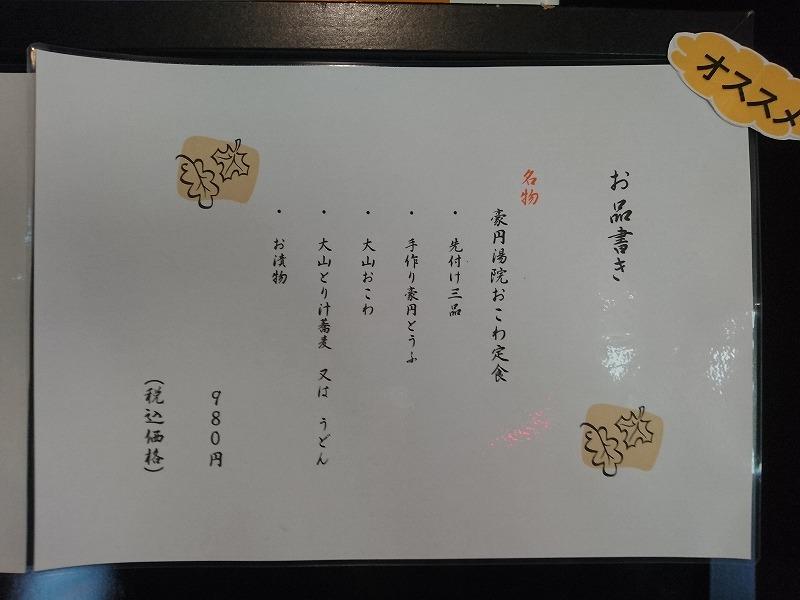 オススメ
お品書き
名物
豪円湯院おこわ定食
・先付け三品
・手作り豪円とうふ
・大山おこわ
・大山とり汁蕎麦 又は うどん
・お漬物
９８０円
（税込価格）